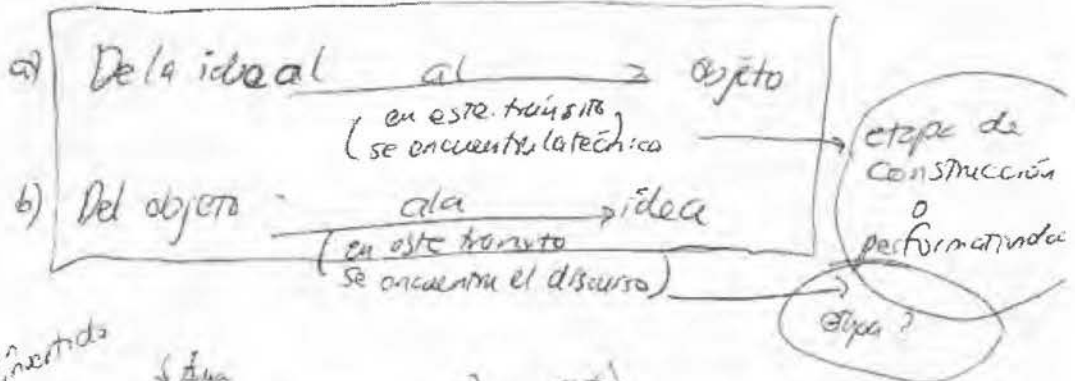 a) De la idea al al objeto
(en este tránsito
se encuentra la técnica
etapa de
construcción
o
performatividad
b) Del objeto a la idea
(en este tránsito
se encuentra el discurso)
etapa?